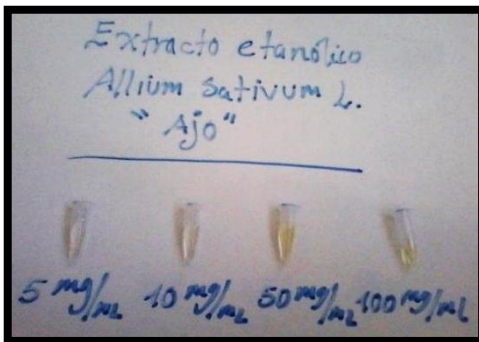 Extracto etanólico
Allium Sativum L.
"Ajo"
5 mg/mL 10 mg/mL 50 mg/mL 100 mg/mL